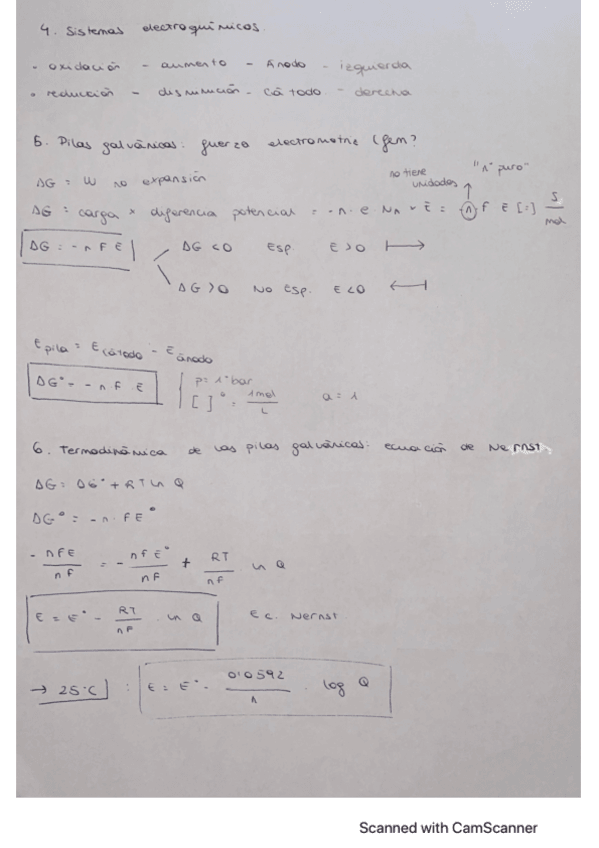 4. Sistemas electroquímicos.
- oxidación - aumento - Ánodo - izquierda
• reducción - disminución - Cátodo - derecha
5. Pilas galvánicas: fuerza electromotriz (fem?
ΔG = W no expansión
no tiene unidades "n" puro"
ΔG = carga × diferencia potencial = -n · e · NA · E = n F E [=] J/mol
ΔG = - n F E
ΔG < 0 Esp E > 0 ⟼
ΔG > 0 No esp. E < 0 ⟻
E pila = E cátodo - E ánodo
ΔG° = - n F E
p = 1 bar
[ ]° = 1 mol/L
a = 1
6. Termodinámica de las pilas galvánicas: ecuación de Nernst
ΔG = ΔG° + RT ln Q
ΔG° = - n · F E°
- nFE/nF = - nFE°/nF + RT/nF ln Q
E = E° - RT/nF · ln Q Ec. Nernst
→ 25°C : E = E° - 0'0592/n · log Q
Scanned with CamScanner